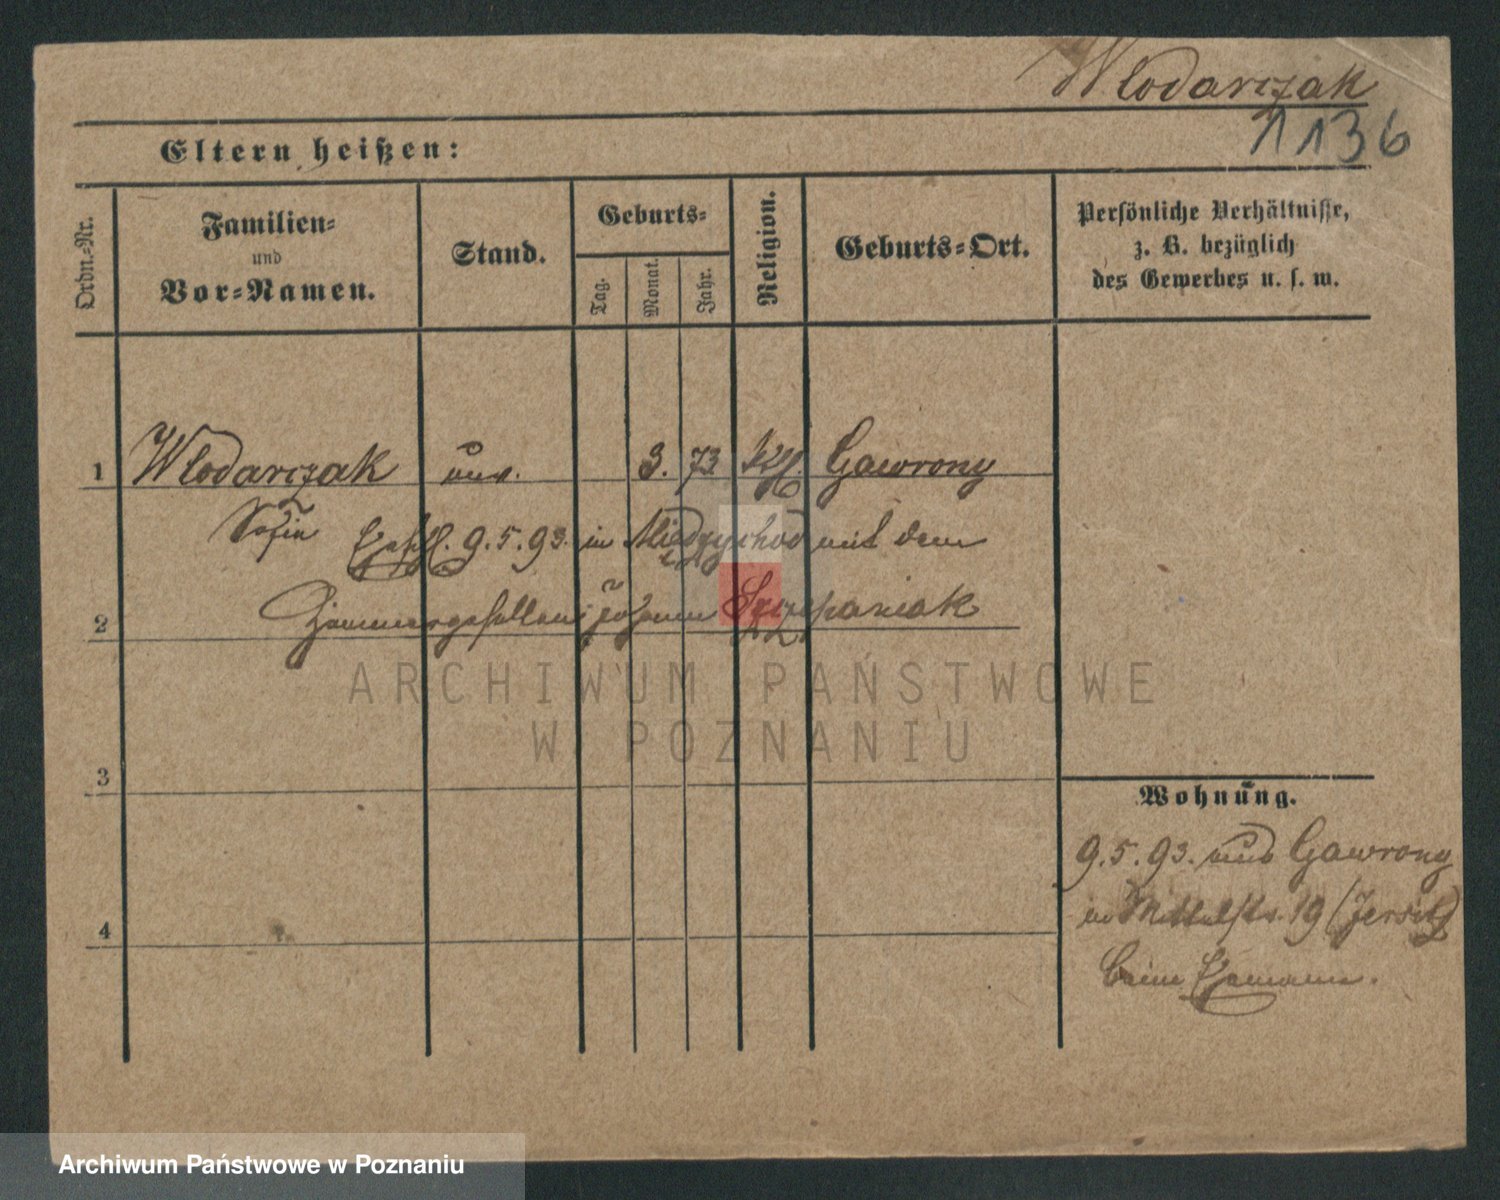 Wlodarczak
1136
Eltern heißen:
Ordn.-Nr.
Familien-
und
Vor-Namen.
Stand.
Geburts-
Tag.
Monat.
Jahr.
Religion.
Geburts-Ort.
Persönliche Verhältnisse,
z. B. bezüglich
des Gewerbes u. s. w.
1 Wlodarczak unv. 3. 73 Kth. Gawrony
Sofie Eheschl. 9.5.93. in Miedzychod mit dem
2 Zimmergesellen Johann Szczepaniak
ARCHIWUM PAŃSTWOWE
W POZNANIU
3
4
Wohnung.
9.5.93. aus Gawrony
in Mittelstr. 19 (Jersitz
beim Ehemann.
Archiwum Państwowe w Poznaniu